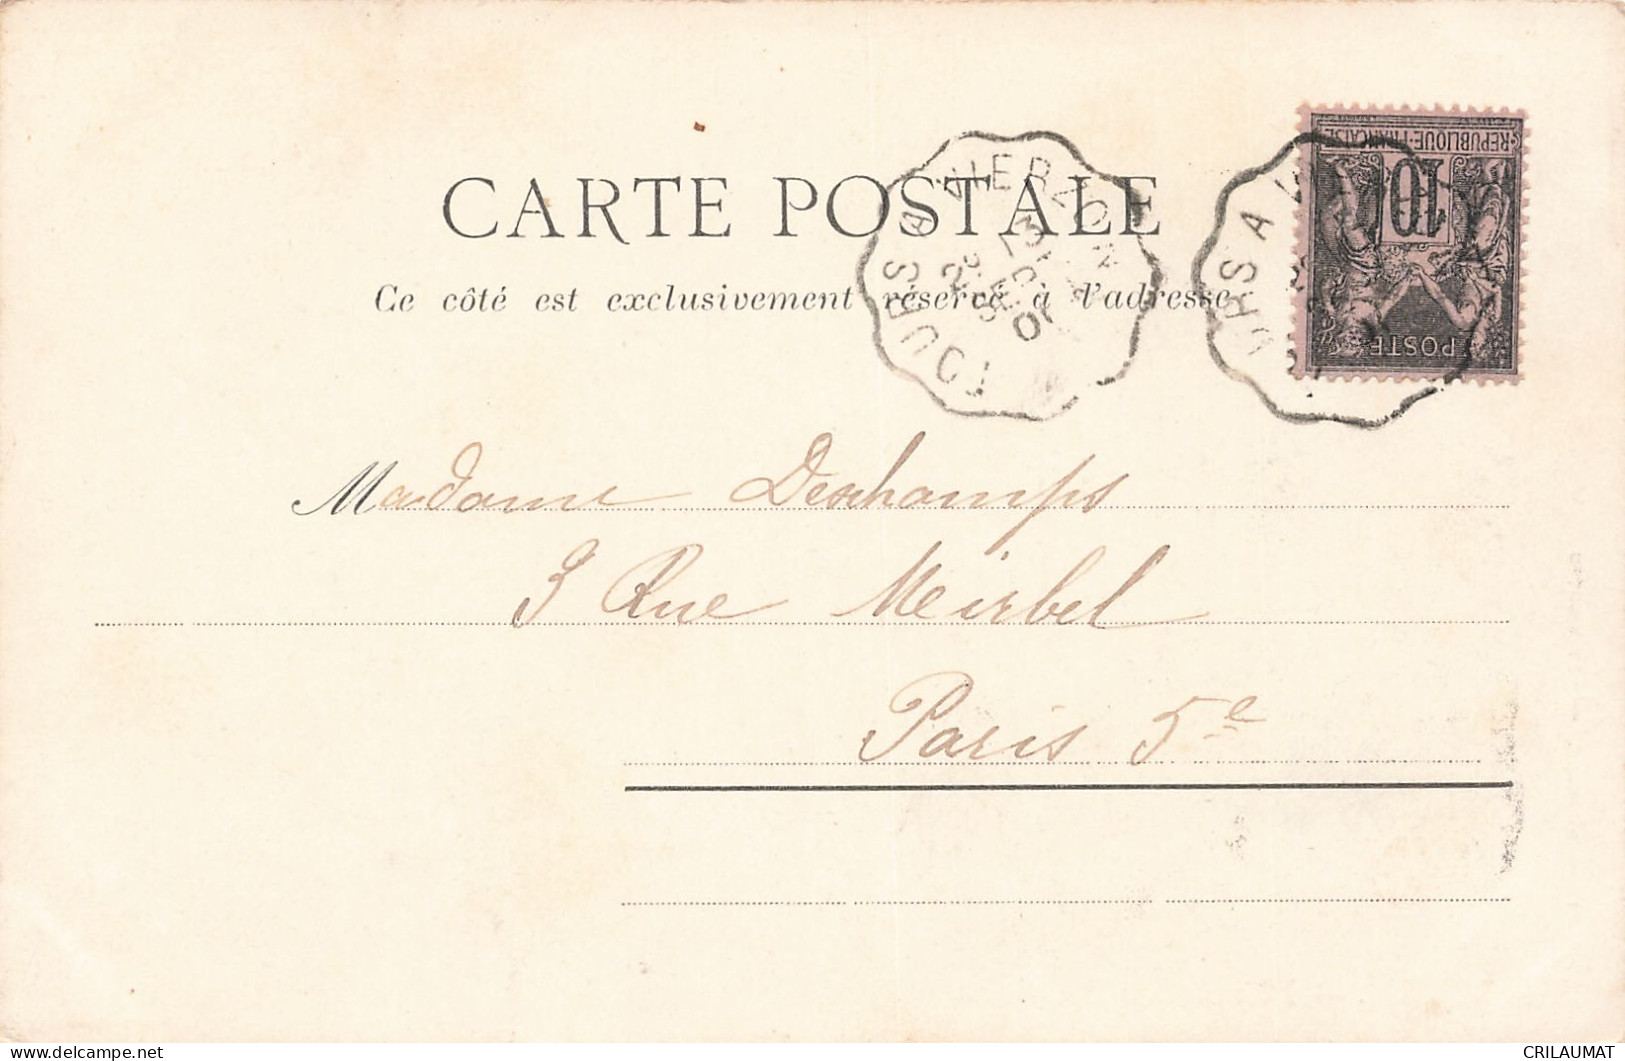 CARTE POSTALE
Ce côté est exclusivement réservé à l'adresse
TOURS A VIERZON
REPUBLIQUE FRANCAISE
10
POSTE
Madame Deschamps
3 Rue Meirbel
Paris 5e
CRILAUMAT